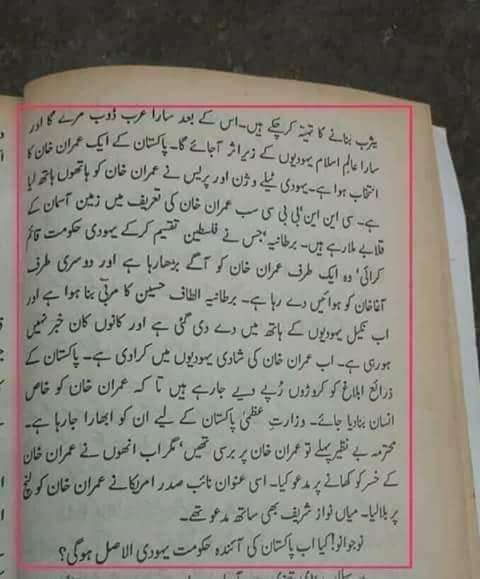 یثرب بنانے کا تہیّہ کرچکے ہیں۔ اس کے بعد سارا عرب ڈوب مرے گا اور
سارا عالمِ اسلام یہودیوں کے زیرِ اثر آجائے گا۔ پاکستان کے ایک عمران خان کا
انتخاب ہوا ہے۔ یہودی ٹیلے وژن اور پریس نے عمران خان کو ہاتھوں ہاتھ لیا
ہے۔ سی این این' بی بی سی سب عمران خان کی تعریف میں زمین آسمان کے
قلابے ملا رہے ہیں۔ برطانیہ' جس نے فلسطین تقسیم کرکے یہودی حکومت قائم
کرائی' وہ ایک طرف عمران خان کو آگے بڑھا رہا ہے اور دوسری طرف
آغا خان کو ہوائیں دے رہا ہے۔ برطانیہ الطاف حسین کا مربّی بنا ہوا ہے اور
اب نکیل یہودیوں کے ہاتھ میں دے دی گئی ہے اور کانوں کان خبر نہیں
ہورہی ہے۔ اب عمران خان کی شادی یہودیوں میں کرادی ہے۔ پاکستان کے
ذرائع ابلاغ کو کروڑوں رُپے دیے جارہے ہیں تا کہ عمران خان کو خاص
انسان بنا دیا جائے۔ وزارتِ عظمیٰ پاکستان کے لیے ان کو ابھارا جارہا ہے۔
محترمہ بے نظیر پہلے تو عمران خان پر برسی تھیں' مگر اب انھوں نے عمران خان
کے خسر کو کھانے پر مدعو کیا۔ اسی عنوان نائب صدر امریکا نے عمران خان کو لنچ
پر بلالیا۔ میاں نواز شریف بھی ساتھ مدعو تھے۔
نوجوانو! کیا اب پاکستان کی آئندہ حکومت یہودی الاصل ہوگی؟